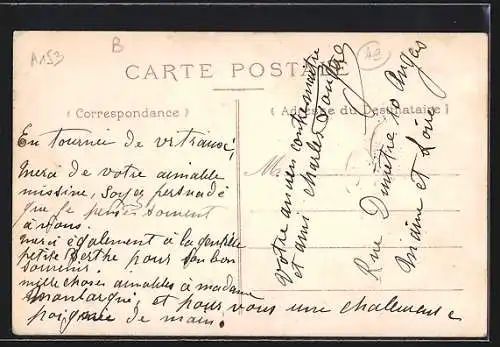 A153
B
49
CARTE POSTALE
( Correspondance )
( Adresse du Destinataire )
En tournée de
Merci de votre aimable
missive, soyez persuadé
que je pense souvent
à vous.
Merci également à la gentille
petite Berthe pour son bon
souvenir.
mille choses aimables à madame
et pour vous une chaleureuse
poignée de main.
M
Votre ancien contremaitre
et ami Charles
Rue 10 Angers
Maine et Loire